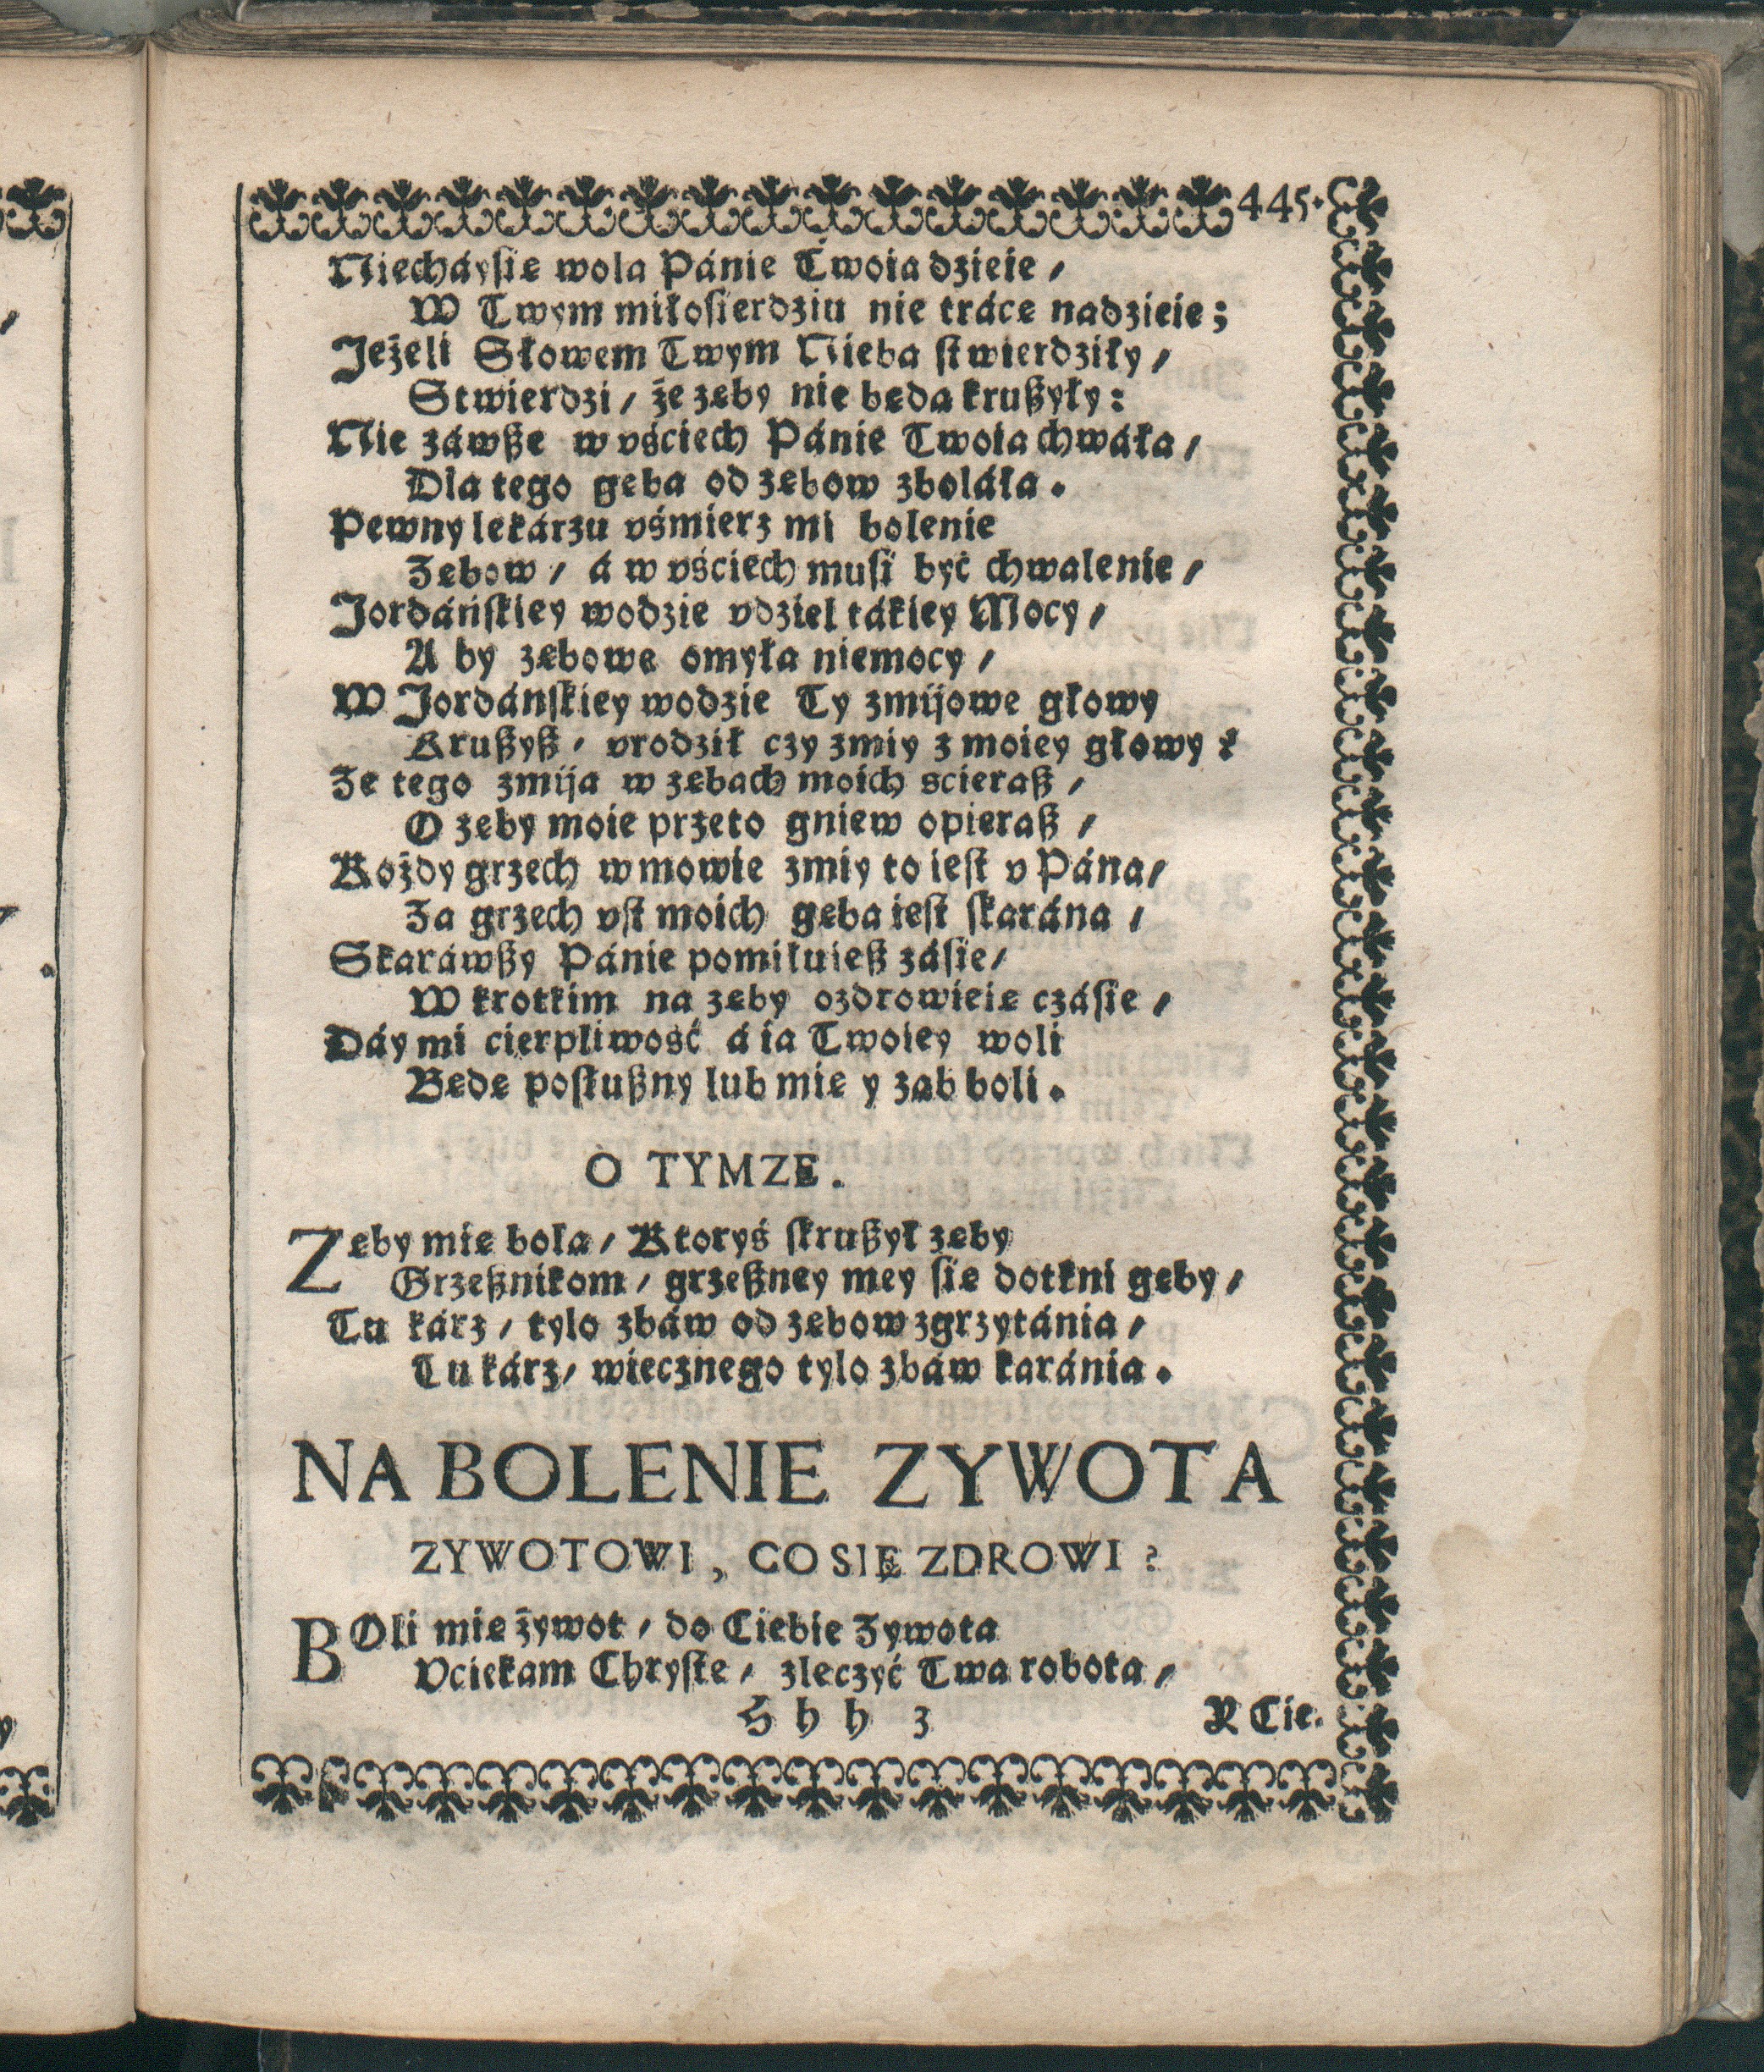 445.
Niecháyſię wola Pánie Twoia dzieie,
W Twym miłoſierdziu nie trácę nadzieie;
Jeżeli Słowem Twym Nieba ſtwierdziły,
Stwierdzi, że zęby nie będą krußyły:
Nie záwße w vściech Pánie Twoia chwáła,
Dla tego gęba od zębow zboláła.
Pewny lekárzu vśmierz mi bolenie
Zębow, á w vściech muſi być chwalenie,
Jordáńſkiey wodzie vdziel tákiey Mocy,
A by zębowe omyła niemocy,
W Jordánſkiey wodzie Ty zmijowe głowy
Krußyß, vrodził czy zmiy z moiey głowy?
Ze tego zmija w zębach moich scieraß,
O zęby moie przeto gniew opieraß,
Kożdy grzech w mowie zmiy to ieſt v Pána,
Za grzech vſt moich gęba ieſt ſkarána,
Skaráwßy Pánie pomiłuieß záſię,
W krotkim na zęby ozdrowieię czáſie,
Dáy mi cierpliwość á ia Twoiey woli
Będę poſłußny lub mię y ząb boli.
O TYMZE.
Zęby mię bolą, Ktoryś ſkrußył zęby
Grzeßnikom, grzeßney mey ſię dotkni gęby,
Tu kárz, tylo zbáw od zębow zgrzytánia,
Tu kárz, wiecznego tylo zbáw karánia.
NA BOLENIE ZYWOTA
ZYWOTOWI, CO SIĘ ZDROWI?
BOli mię żywot, do Ciebie Zywota
Vciekam Chryſte, zleczyć Twa robota,
Hhh 3
R Cie.